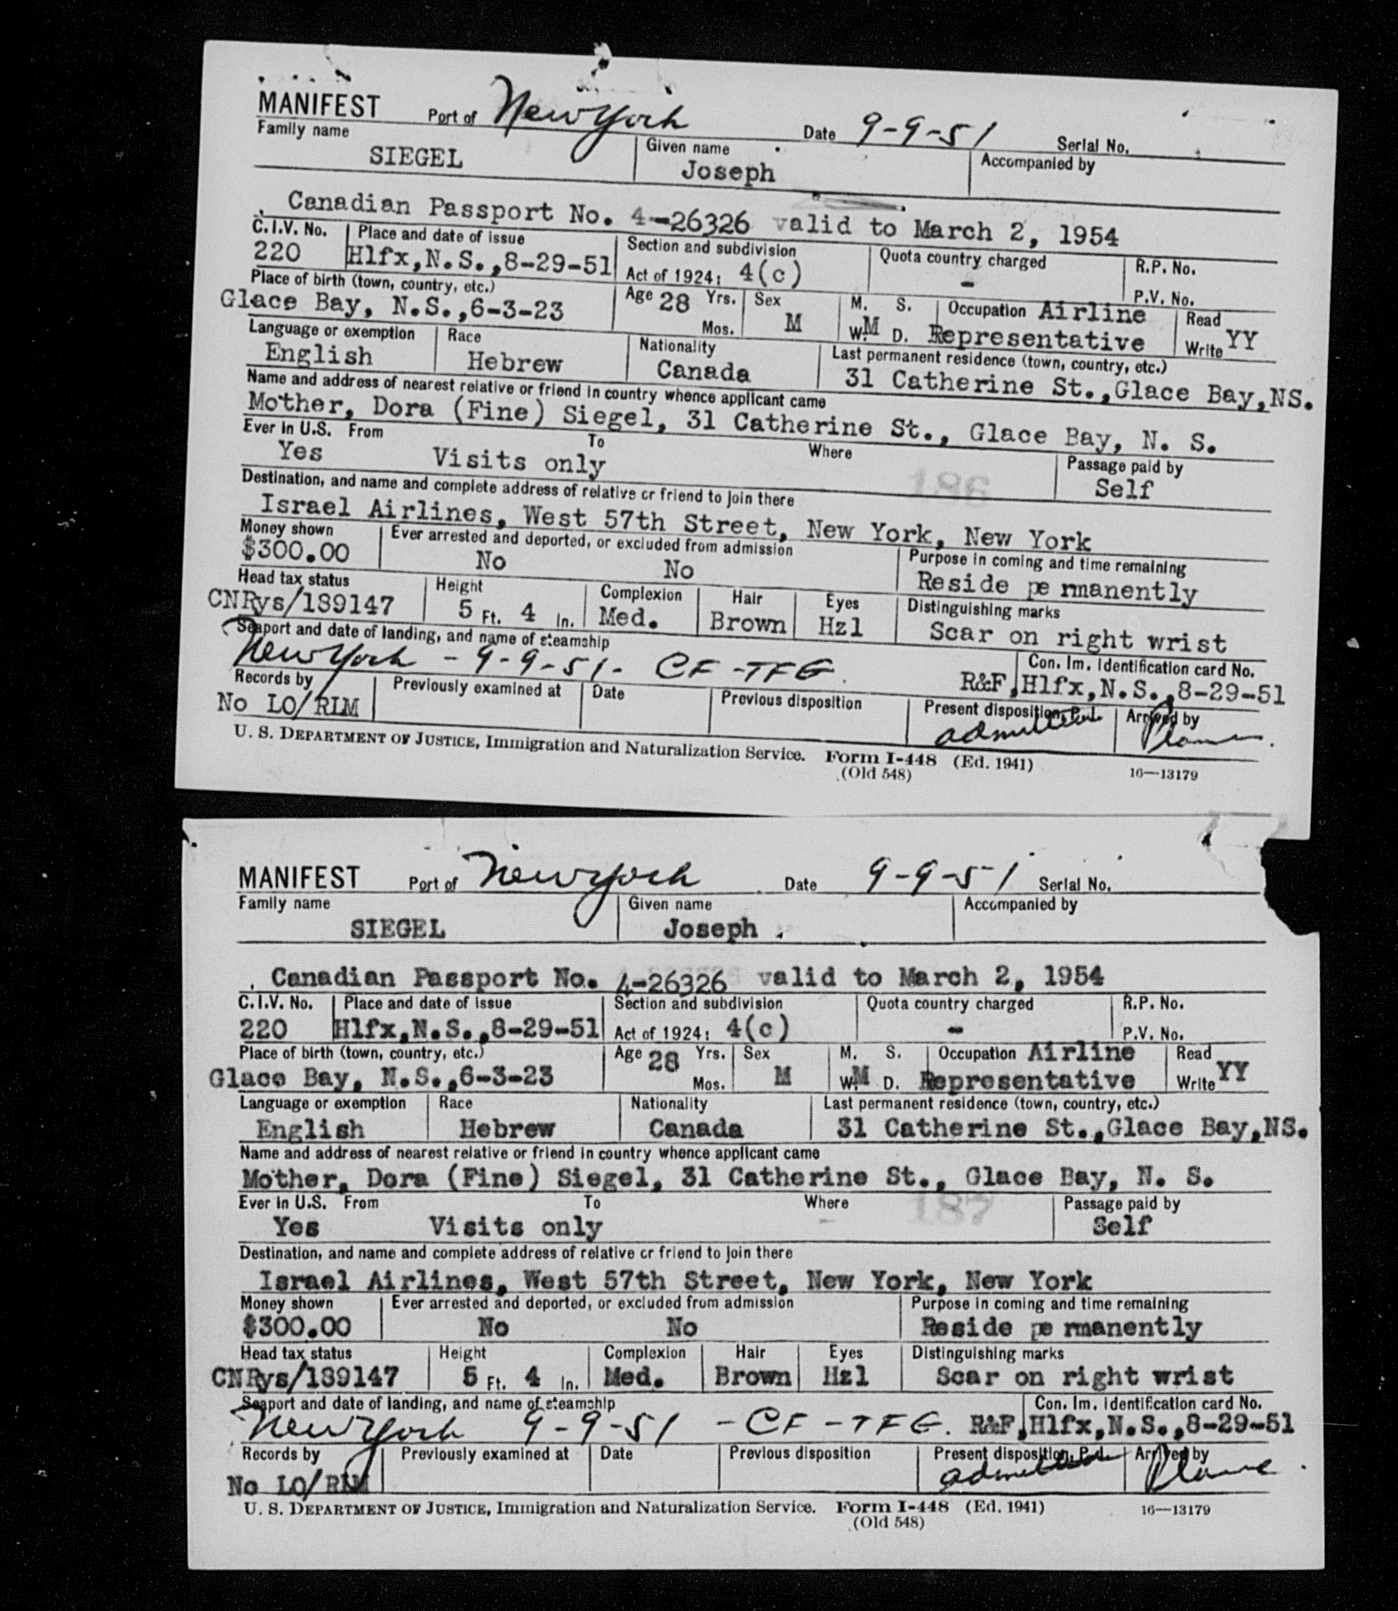 MANIFEST Port of New York Date 9-9-51 Serial No.
Family name Given name Accompanied by
SIEGEL Joseph
Canadian Passport No. 4-26326 valid to March 2, 1954
C.I.V. No. Place and date of issue Section and subdivision Quota country charged R.P. No.
220 Hlfx,N.S.,8-29-51 Act of 1924: 4(c) - P.V. No.
Place of birth (town, country, etc.) Age 28 Yrs. Sex M. S. Occupation Airline Read
Glace Bay, N.S.,6-3-23 Mos. M W. M D. Representative Write YY
Language or exemption Race Nationality Last permanent residence (town, country, etc.)
English Hebrew Canada 31 Catherine St.,Glace Bay,NS.
Name and address of nearest relative or friend in country whence applicant came
Mother, Dora (Fine) Siegel, 31 Catherine St., Glace Bay, N. S.
Ever in U.S. From To Where Passage paid by
Yes Visits only 186 Self
Destination, and name and complete address of relative or friend to join there
Israel Airlines, West 57th Street, New York, New York
Money shown Ever arrested and deported, or excluded from admission Purpose in coming and time remaining
$300.00 No No Reside pe rmanently
Head tax status Height Complexion Hair Eyes Distinguishing marks
CNRys/1S9147 5 Ft. 4 In. Med. Brown Hzl Scar on right wrist
Seaport and date of landing, and name of steamship Con. Im. Identification card No.
New York - 9-9-51- CF-TFG. R&F,Hlfx,N.S.,8-29-51
Records by Previously examined at Date Previous disposition Present disposition Arrived by
No LO/RLM admitted Plane
U. S. DEPARTMENT OF JUSTICE, Immigration and Naturalization Service. Form I-448 (Ed. 1941) 16—13179
(Old 548)
MANIFEST Port of New York Date 9-9-51 Serial No.
Family name Given name Accompanied by
SIEGEL Joseph
Canadian Passport No. 4-26326 valid to March 2, 1954
C.I.V. No. Place and date of issue Section and subdivision Quota country charged R.P. No.
220 Hlfx,N.S.,8-29-51 Act of 1924: 4(c) - P.V. No.
Place of birth (town, country, etc.) Age 28 Yrs. Sex M. S. Occupation Airline Read
Glace Bay, N.S.,6-3-23 Mos. M W. M D. Representative Write YY
Language or exemption Race Nationality Last permanent residence (town, country, etc.)
English Hebrew Canada 31 Catherine St.,Glace Bay,NS.
Name and address of nearest relative or friend in country whence applicant came
Mother, Dora (Fine) Siegel, 31 Catherine St., Glace Bay, N. S.
Ever in U.S. From To Where Passage paid by
Yes Visits only 187 Self
Destination, and name and complete address of relative or friend to join there
Israel Airlines, West 57th Street, New York, New York
Money shown Ever arrested and deported, or excluded from admission Purpose in coming and time remaining
$300.00 No No Reside pe rmanently
Head tax status Height Complexion Hair Eyes Distinguishing marks
CNRys/1S9147 5 Ft. 4 In. Med. Brown Hzl Scar on right wrist
Seaport and date of landing, and name of steamship Con. Im. Identification card No.
New York 9-9-51 -CF-TFG. R&F,Hlfx,N.S.,8-29-51
Records by Previously examined at Date Previous disposition Present disposition Arrived by
No LO/RLM admitted Plane
U. S. DEPARTMENT OF JUSTICE, Immigration and Naturalization Service. Form I-448 (Ed. 1941) 16—13179
(Old 548)